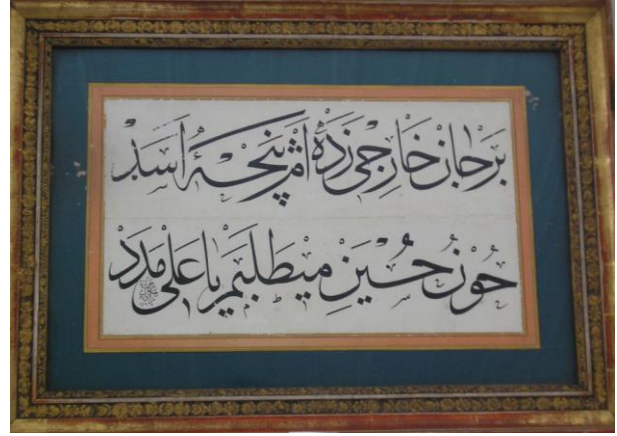 بر جان خارجی زده ام پنجۀ اسد
خون حسین میطلبم یا علی مدد